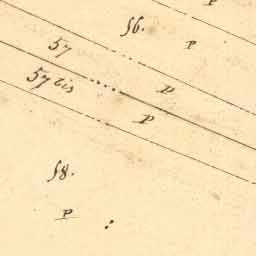 P
56.
P
57
P
57 bis
P
58.
P